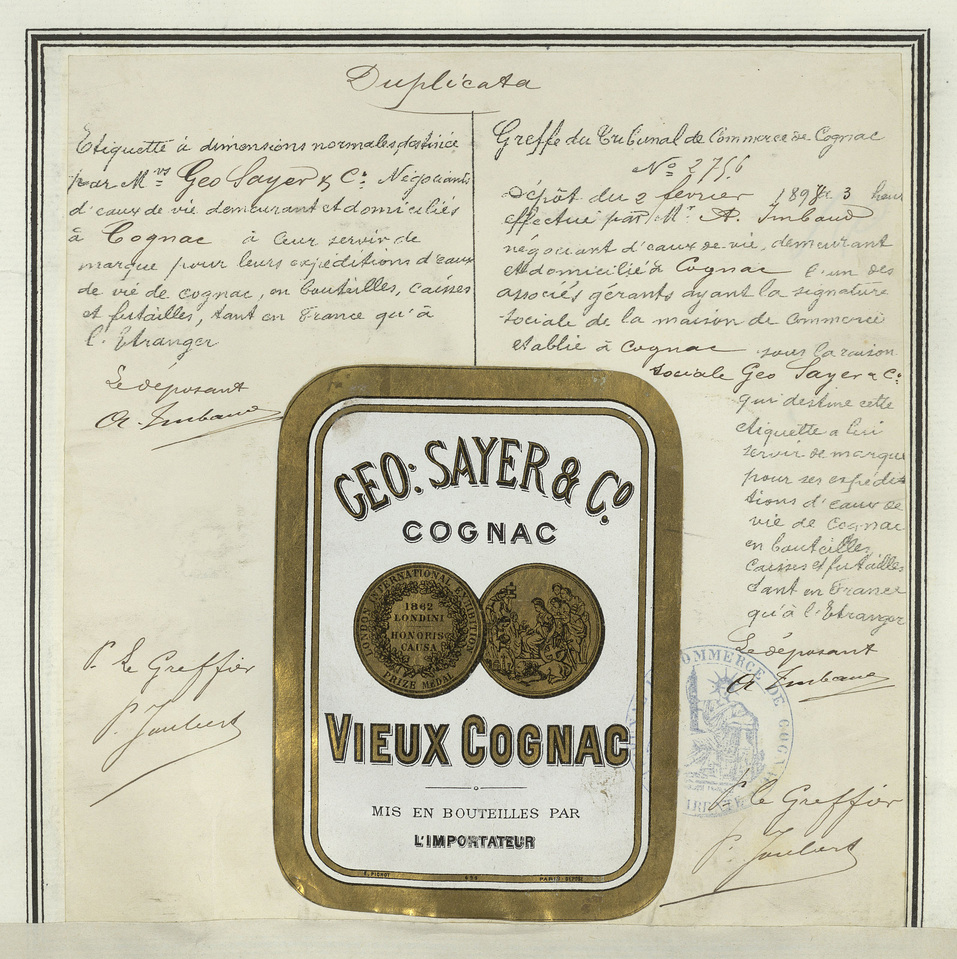 Duplicata
Etiquette à dimensions normales destinée
par Mrs Geo Sayer & Co Négociants
d'eaux de vie demeurant et domiciliés
à Cognac à leur servir de
marque pour leurs expéditions d'eaux
de vie de cognac, en bouteilles, caisses
et futailles, tant en France qu'à
l'Etranger
Le déposant
A. Imbaud
P. le Greffier
P. Joubert
Greffe du Tribunal de Commerce de Cognac
No 2756
Dépôt du 2 février 3 heures
effectué par Mr A. Imbaud
négociant d'eaux-de-vie, demeurant
et domicilié à Cognac l'un des
associés gérants ayant la signature
sociale de la maison de Commerce
etablie à Cognac sous la raison
sociale Geo Sayer & Co
qui destine cette
etiquette a lui
servir de marque
pour ses expédi
tions d'eaux de
vie de Cognac
en bouteilles,
caisses et futailles
tant en France
qu'à l'Etranger
Le déposant
A Imbaud
P. le Greffier
P. Joubert
COMMERCE DE COGNAC
GEO: SAYER & Co.
COGNAC
LONDON INTERNATIONAL EXHIBITION
1862
LONDINI
HONORIS
CAUSA
PRIZE MEDAL
VIEUX COGNAC
MIS EN BOUTEILLES PAR
L'IMPORTATEUR
F. PICHOT PARIS. DEPOSE